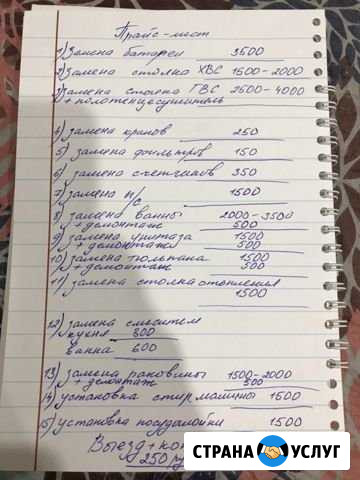 Прайс-лист
1) Замена батареи 3500
2) Замена стояка ХВС 1500-2000
3) Замена стояка ГВС 2500-4000
+ полотенцесушитель
4) замена кранов 250
5) замена фильтров 150
6) замена счетчиков 350
7) замена п/с 1500
8) замена ванны 2000-3500
+ демонтаж 500
9) замена унитаза 1500
+ демонтаж 500
10) замена тюльпана 1500
+ демонтаж 500
11) замена стояка отопления
1500
12) замена смесителя
кухня 800
ванна 600
13) замена раковины 1500-2000
+ демонтаж 500
14) установка стир машины 1500
15) установка посудомойки 1500
Выезд + ко
250 ру
СТРАНА УСЛУГ